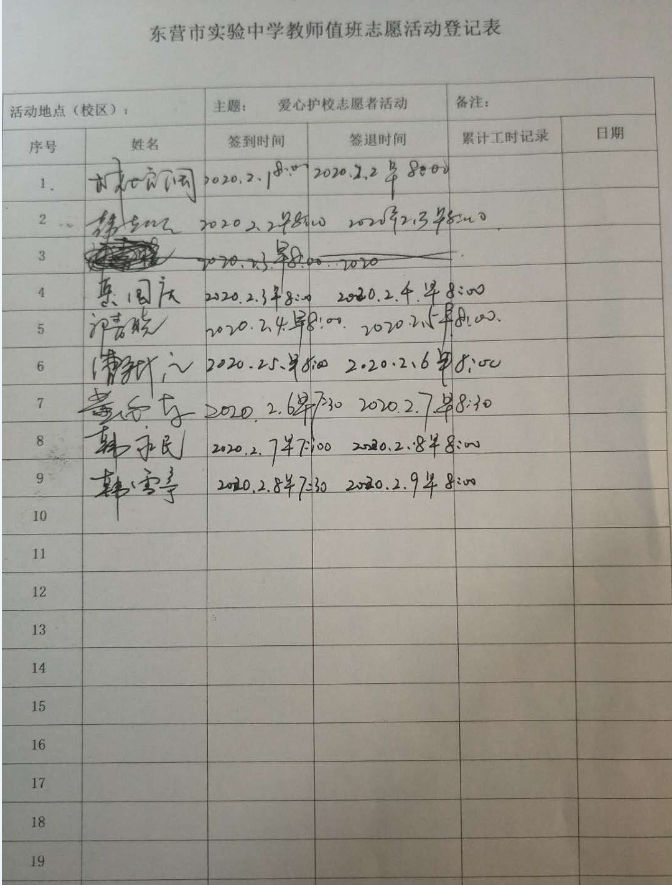 东营市实验中学教师值班志愿活动登记表
活动地点（校区）： 主题： 爱心护校志愿者活动 备注：
序号 姓名 签到时间 签退时间 累计工时记录 日期
1. 2020.2.1 8:00 2020.2.2 早 8:00
2 2020.2.2早8:00 2020年2.3早8:00
3 2020.2.3.早8:00. 2020
4 国庆 2020.2.3早8:00 2020.2.4.早8:00
5 2020.2.4.早8:00. 2020.2.5早8:00.
6 2020.2.5.早8:00 2020.2.6早8:00
7 2020.2.6早7:30 2020.2.7早8:30
8 韩永民 2020.2.7早7:00 2020.2.8早8:00
9 韩雪亭 2020.2.8早7:30 2020.2.9早8:00
10
11
12
13
14
15
16
17
18
19